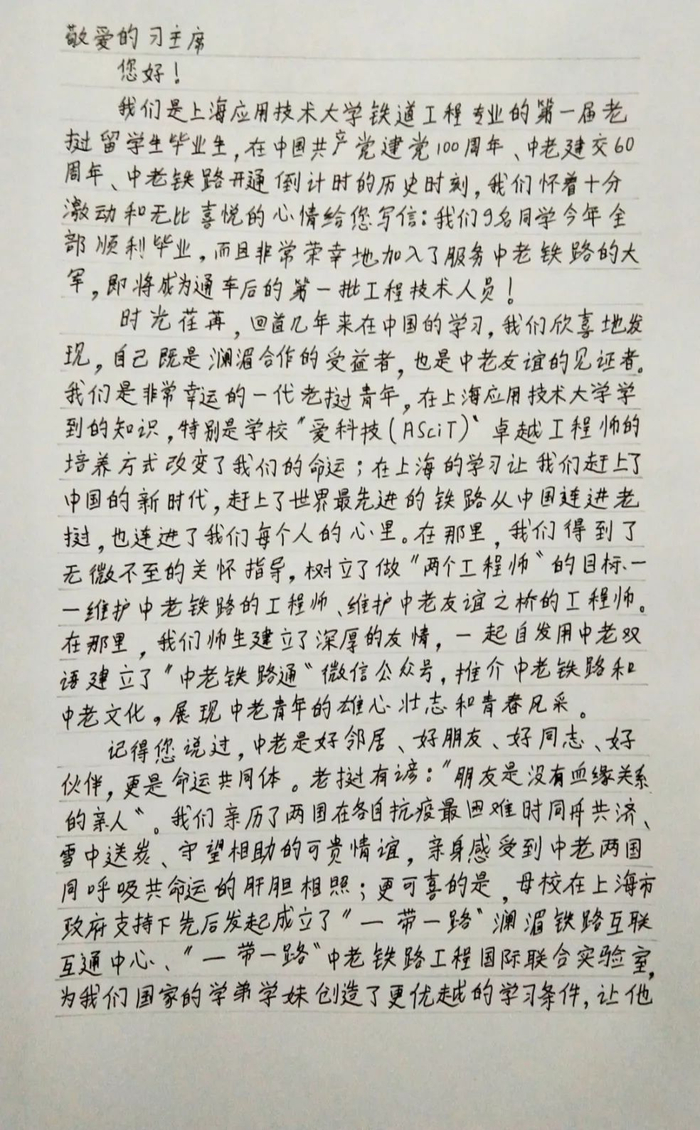 敬爱的习主席
您好！
我们是上海应用技术大学铁道工程专业的第一届老
挝留学生毕业生，在中国共产党建党100周年、中老建交60
周年、中老铁路开通倒计时的历史时刻，我们怀着十分
激动和无比喜悦的心情给您写信：我们9名同学今年全
部顺利毕业，而且非常荣幸地加入了服务中老铁路的大
军，即将成为通车后的第一批工程技术人员！
时光荏苒，回首几年来在中国的学习，我们欣喜地发
现，自己既是澜湄合作的受益者，也是中老友谊的见证者。
我们是非常幸运的一代老挝青年，在上海应用技术大学学
到的知识，特别是学校“爱科技（ASciT）”卓越工程师的
培养方式改变了我们的命运；在上海的学习让我们赶上了
中国的新时代，赶上了世界最先进的铁路从中国连进老
挝，也连进了我们每个人的心里。在那里，我们得到了
无微不至的关怀指导，树立了做“两个工程师”的目标—
—维护中老铁路的工程师、维护中老友谊之桥的工程师。
在那里，我们师生建立了深厚的友情，一起自发用中老双
语建立了“中老铁路通”微信公众号，推介中老铁路和
中老文化，展现中老青年的雄心壮志和青春风采。
记得您说过，中老是好邻居、好朋友、好同志、好
伙伴，更是命运共同体。老挝有谚：“朋友是没有血缘关系
的亲人”。我们亲历了两国在各自抗疫最困难时同舟共济、
雪中送炭、守望相助的可贵情谊，亲身感受到中老两国
同呼吸共命运的肝胆相照；更可喜的是，母校在上海市
政府支持下先后发起成立了“一带一路”澜湄铁路互联
互通中心、“一带一路”中老铁路工程国际联合实验室，
为我们国家的学弟学妹创造了更优越的学习条件，让他